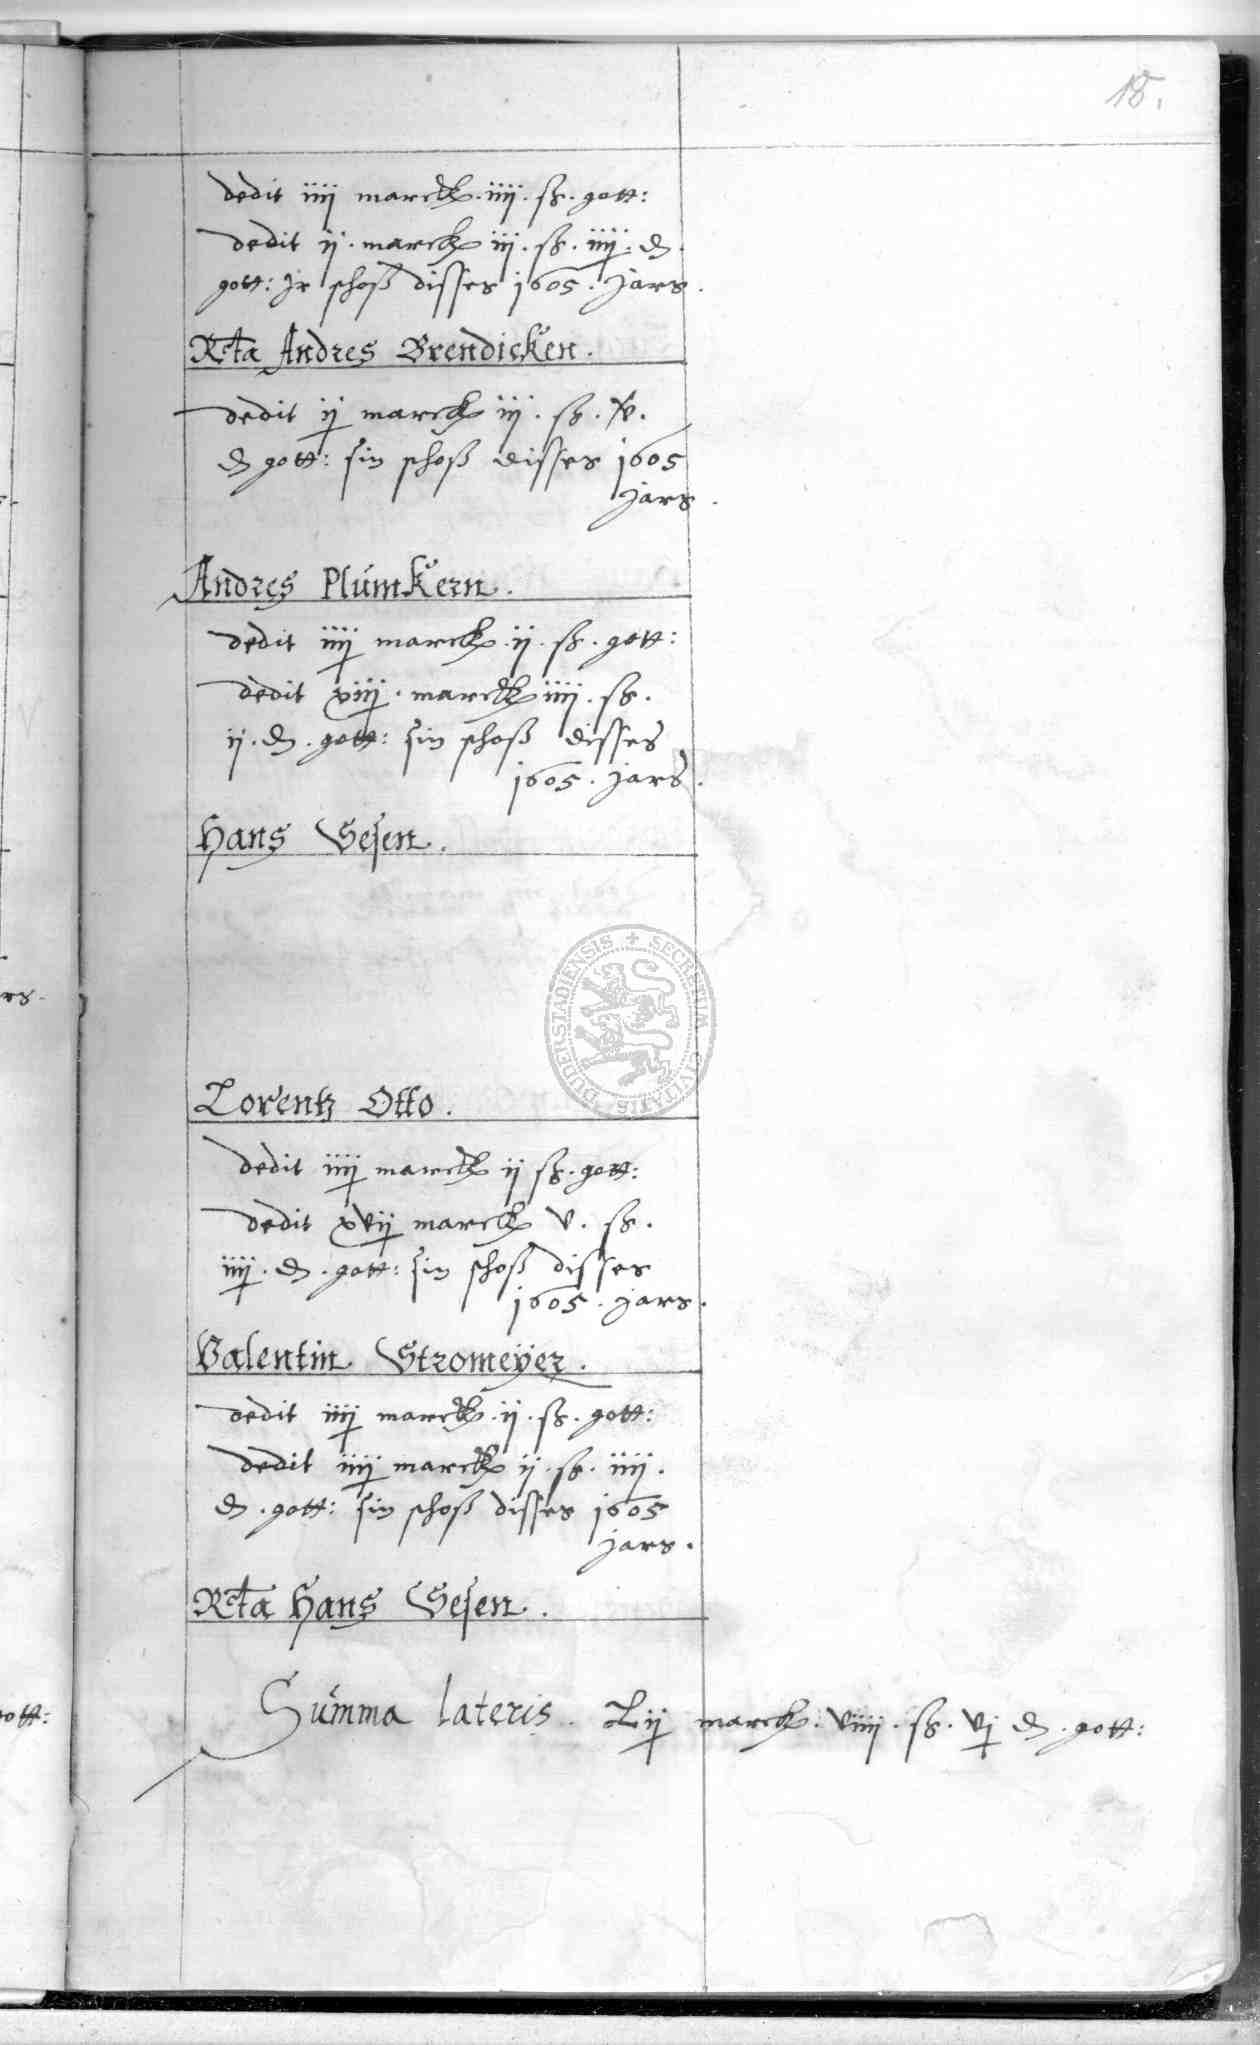 18.
dedit iiij marck. iiij. ß. gott:
dedit ij. marck iij. ß. iiij. ₰.
gott: Jr schoß disses 1605. Jars.
Rcta Andres Brendicken.
dedit ij marck iij. ß. v.
₰ gott: sin schoß disses 1605
Jars.
Andres Plumkern.
dedit iiij marck. ij. ß. gott:
dedit xiiij. marck iiij. ß.
ij. ₰. gott: sin schoß disses
1605. Jars.
Hans Gesen.
Lorentz Otto.
dedit iiij marck ij ß. gott:
dedit xvij marck v. ß.
iiij. ₰. gott: sin schoß disses
1605. Jars.
Valentin Stromeyer.
dedit iiij marck. ij. ß. gott:
dedit iiij marck ij. ß. iiij.
₰. gott: sin schoß disses 1605
Jars.
Rcta Hans Gesen.
Summa lateris. Lij marck. viiij. ß. vj ₰. gott:
SECRETUM CIVITATIS DUDERSTADIENSIS